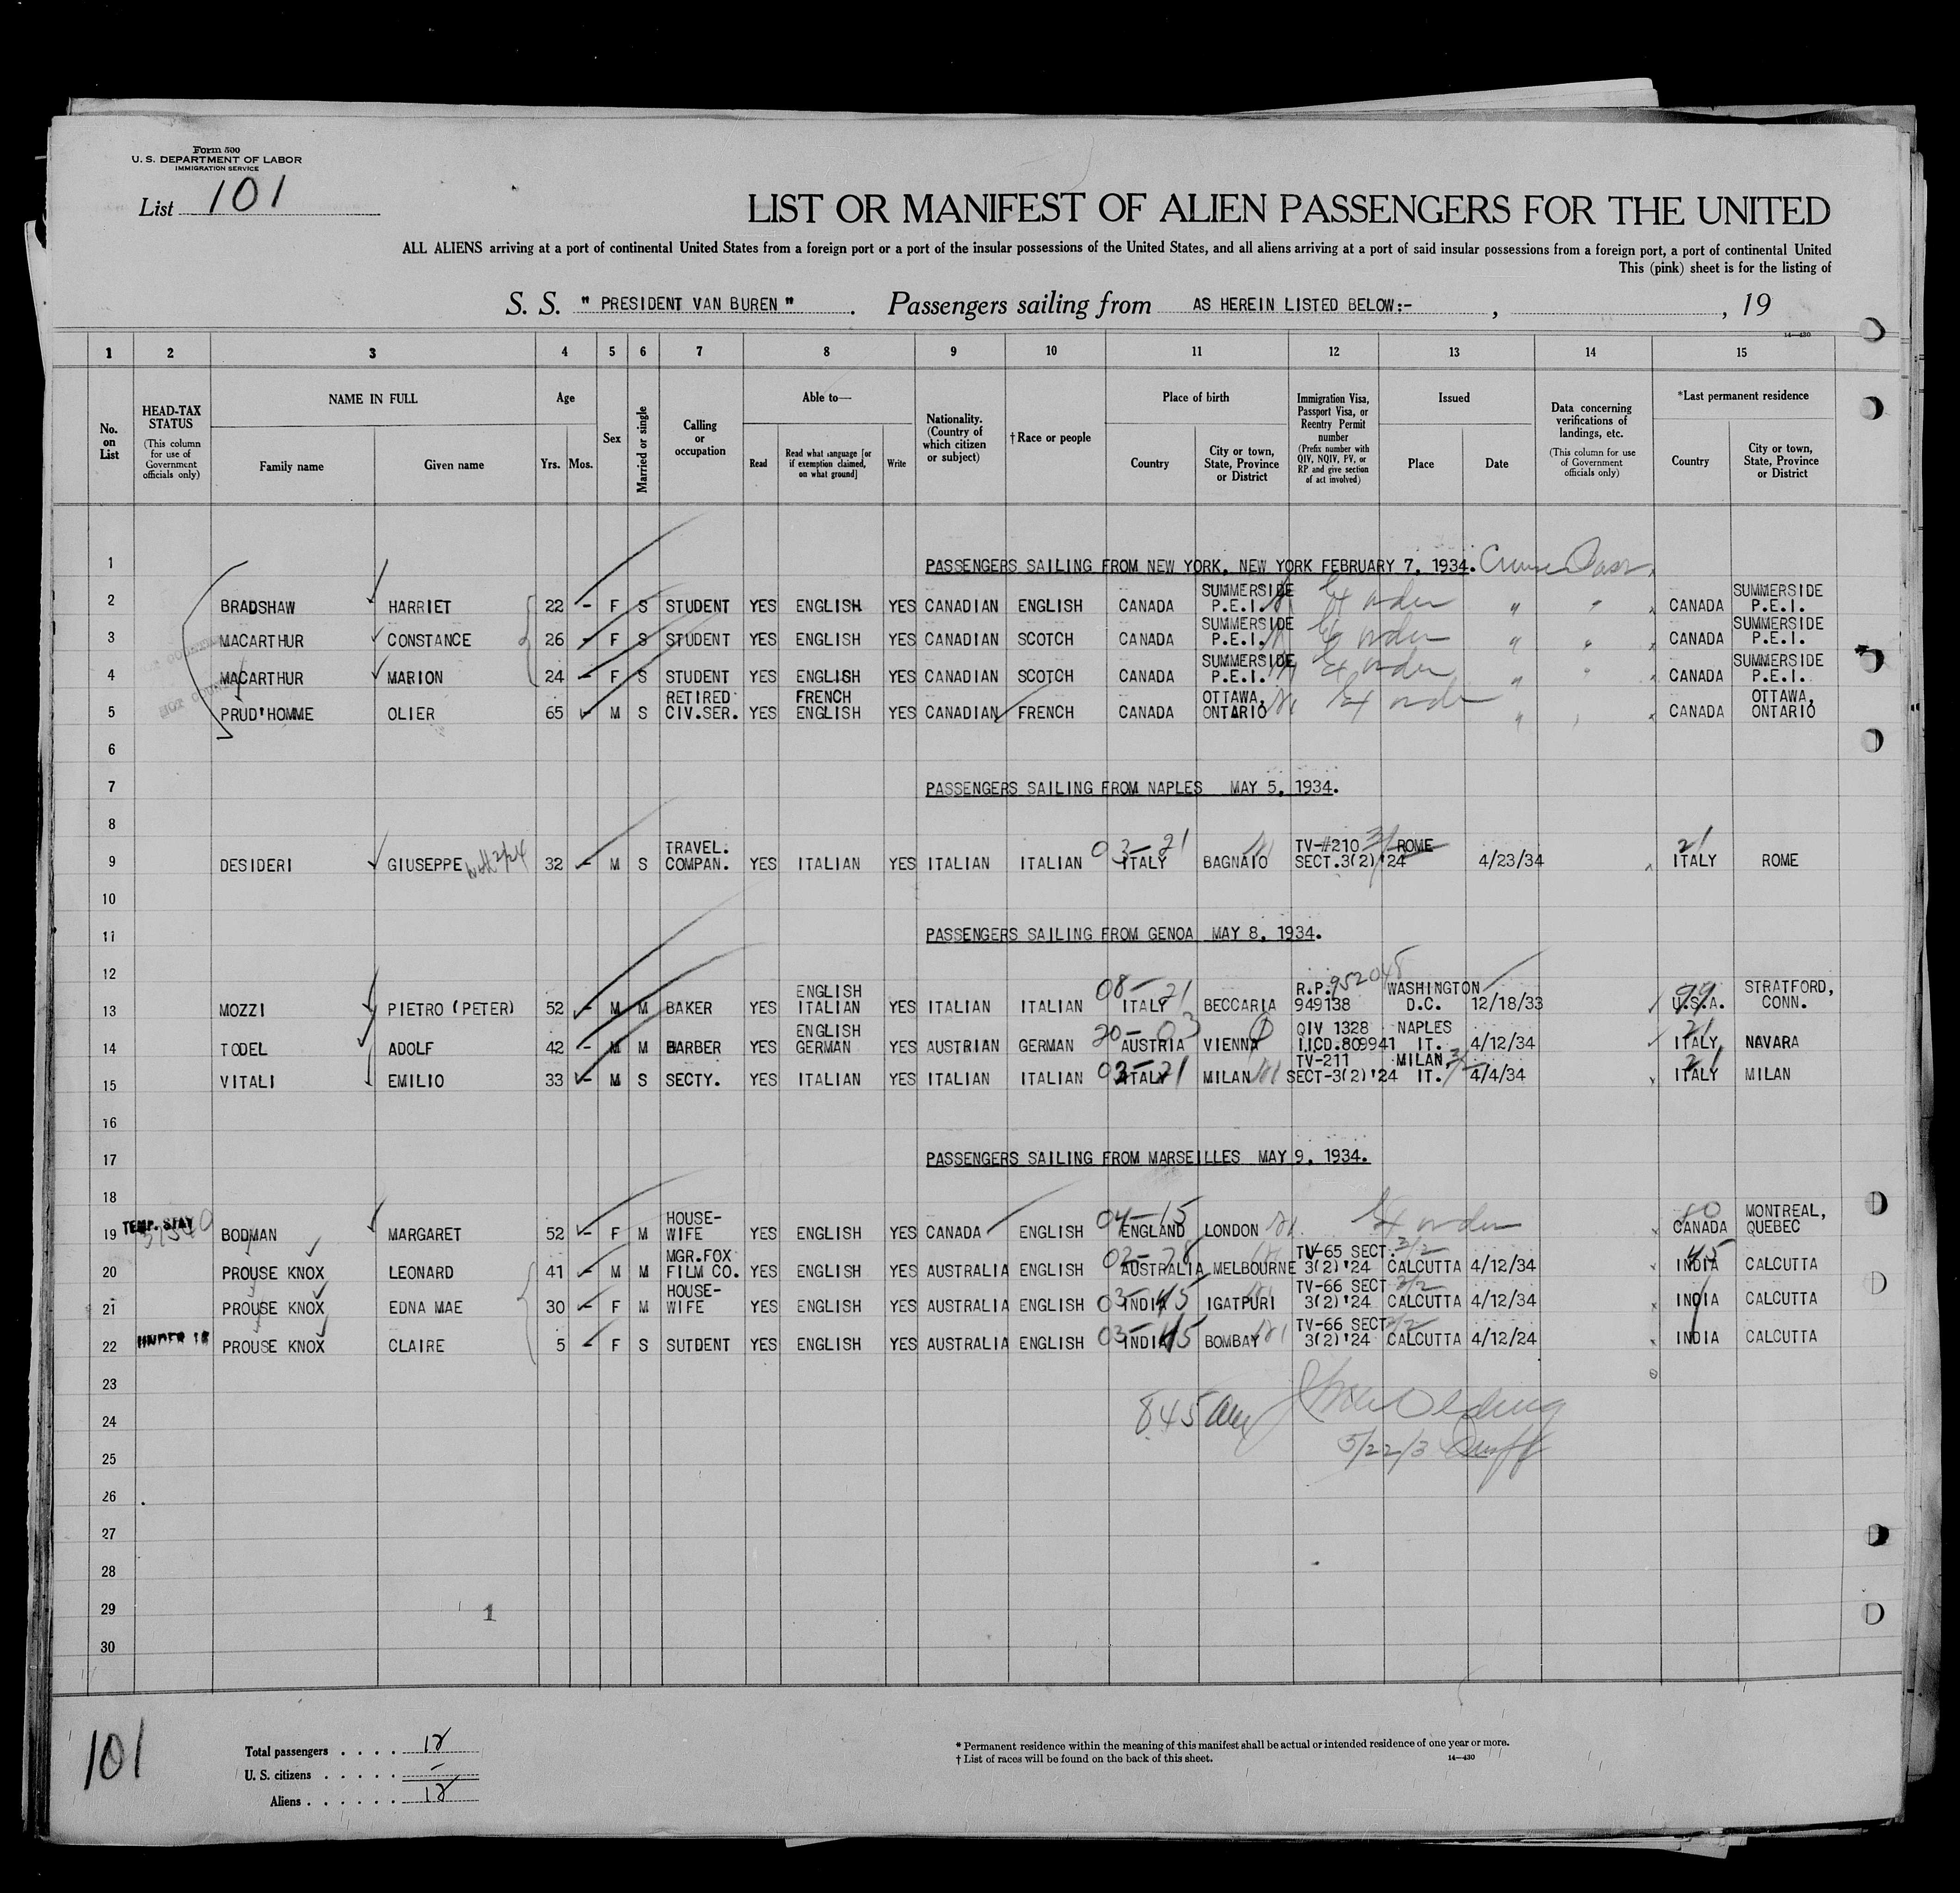 Form 500
U. S. DEPARTMENT OF LABOR
IMMIGRATION SERVICE
List 101
LIST OR MANIFEST OF ALIEN PASSENGERS FOR THE UNITED
ALL ALIENS arriving at a port of continental United States from a foreign port or a port of the insular possessions of the United States, and all aliens arriving at a port of said insular possessions from a foreign port, a port of continental United
This (pink) sheet is for the listing of
S. S. "PRESIDENT VAN BUREN". Passengers sailing from AS HEREIN LISTED BELOW:- , , 19
14—430
1 2 3 4 5 6 7 8 9 10 11 12 13 14 15
No. on List
HEAD-TAX STATUS (This column for use of Government officials only)
NAME IN FULL
Family name Given name
Age
Yrs. Mos.
Sex
Married or single
Calling or occupation
Able to—
Read Read what language [or if exemption claimed, on what ground] Write
Nationality. (Country of which citizen or subject)
†Race or people
Place of birth
Country City or town, State, Province or District
Immigration Visa, Passport Visa, or Reentry Permit number (Prefix number with QIV, NQIV, PV, or RP and give section of act involved)
Issued
Place Date
Data concerning verifications of landings, etc. (This column for use of Government officials only)
*Last permanent residence
Country City or town, State, Province or District
1 PASSENGERS SAILING FROM NEW YORK, NEW YORK FEBRUARY 7, 1934.
2 BRADSHAW HARRIET 22 - F S STUDENT YES ENGLISH YES CANADIAN ENGLISH CANADA SUMMERSIDE P.E.I. Ex order " " CANADA SUMMERSIDE P.E.I.
3 MACARTHUR CONSTANCE 26 - F S STUDENT YES ENGLISH YES CANADIAN SCOTCH CANADA SUMMERSIDE P.E.I. Ex order " " CANADA SUMMERSIDE P.E.I.
4 MACARTHUR MARION 24 - F S STUDENT YES ENGLISH YES CANADIAN SCOTCH CANADA SUMMERSIDE P.E.I. Ex order " " CANADA SUMMERSIDE P.E.I.
5 PRUD'HOMME OLIER 65 M S RETIRED CIV.SER. YES FRENCH ENGLISH YES CANADIAN FRENCH CANADA OTTAWA, ONTARIO Ex order " CANADA OTTAWA, ONTARIO
6
7 PASSENGERS SAILING FROM NAPLES MAY 5, 1934.
8
9 DESIDERI GIUSEPPE 32 - M S TRAVEL. COMPAN. YES ITALIAN YES ITALIAN ITALIAN 03-21 ITALY BAGNAIO TV-#210 SECT.3(2)'24 3/2 ROME 4/23/34 21 ITALY ROME
10
11 PASSENGERS SAILING FROM GENOA MAY 8, 1934.
12
13 MOZZI PIETRO (PETER) 52 - M M BAKER YES ENGLISH ITALIAN YES ITALIAN ITALIAN 08-21 ITALY BECCARIA R.P. 949138 952048 WASHINGTON D.C. 12/18/33 99 U.S.A. STRATFORD, CONN.
14 TODEL ADOLF 42 - M M BARBER YES ENGLISH GERMAN YES AUSTRIAN GERMAN 20-03 AUSTRIA VIENNA QIV 1328 I.ICD.809941 NAPLES IT. 4/12/34 21 ITALY NAVARA
15 VITALI EMILIO 33 - M S SECTY. YES ITALIAN YES ITALIAN ITALIAN 03-21 ITALY MILAN TV-211 SECT-3(2)'24 MILAN, IT. 3/2 4/4/34 21 ITALY MILAN
16
17 PASSENGERS SAILING FROM MARSEILLES MAY 9, 1934.
18
19 TEMP. STAY BODMAN MARGARET 52 - F M HOUSE-WIFE YES ENGLISH YES CANADA ENGLISH 04-15 ENGLAND LONDON Ex order CANADA MONTREAL, QUEBEC
20 PROUSE KNOX LEONARD 41 - M M MGR.FOX FILM CO. YES ENGLISH YES AUSTRALIA ENGLISH AUSTRALIA MELBOURNE TV-65 SECT. 3(2)'24 3/2 CALCUTTA 4/12/34 45 INDIA CALCUTTA
21 PROUSE KNOX EDNA MAE 30 - F M HOUSE-WIFE YES ENGLISH YES AUSTRALIA ENGLISH 03-45 INDIA IGATPURI TV-66 SECT 3(2)'24 3/2 CALCUTTA 4/12/34 INDIA CALCUTTA
22 UNDER 16 PROUSE KNOX CLAIRE 5 - F S SUTDENT YES ENGLISH YES AUSTRALIA ENGLISH 03-45 INDIA BOMBAY TV-66 SECT 3(2)'24 3/2 CALCUTTA 4/12/24 INDIA CALCUTTA
23
24 845 am
25 5/22/3
26
27
28
29 1
30
101
Total passengers . . . . 12
U. S. citizens . . . . . -
Aliens . . . . . . 12
* Permanent residence within the meaning of this manifest shall be actual or intended residence of one year or more.
† List of races will be found on the back of this sheet. 14—430